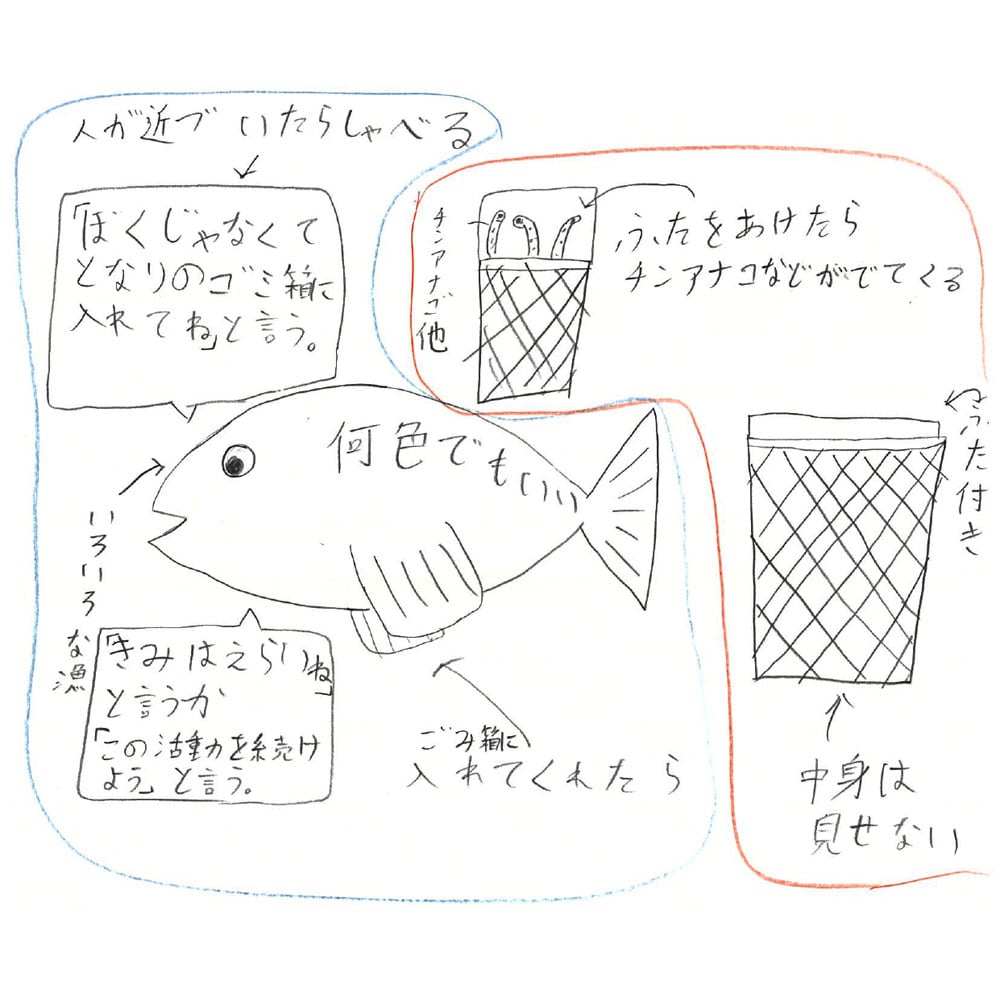 人が近づいたらしゃべる
「ぼくじゃなくて
となりのゴミ箱に
入れてね」と言う。
何色でもいい
いろいろな漁
「きみはえらいね」
と言うか
「この活動を続け
よう」と言う。
ごみ箱に
入れてくれたら
チンアナゴ他
ふたをあけたら
チンアナコなどがでてくる
ふた付き
中身は
見せない